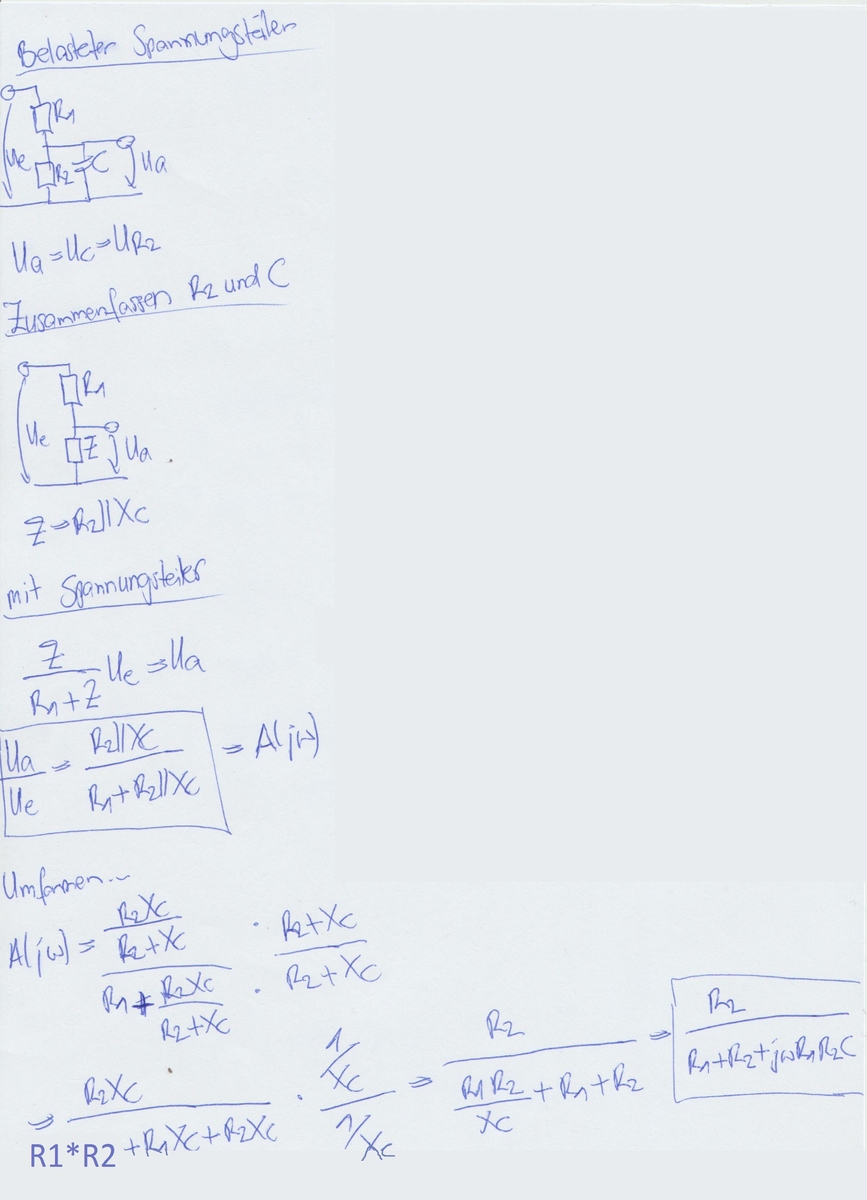 Belasteter Spannungsteiler
R1
Ue
R2
C
Ua
Ua = Uc = UR2
Zusammenfassen R2 und C
R1
Ue
Z
Ua
Z = R2||Xc
mit Spannungsteiler
Z / (R1 + Z) Ue = Ua
Ua / Ue = R2||Xc / (R1 + R2||Xc) = A(jω)
Umformen...
A(jω) = (R2Xc / (R2 + Xc)) / (R1 + R2Xc / (R2 + Xc)) · (R2 + Xc) / (R2 + Xc)
= R2Xc / (R1*R2 + R1Xc + R2Xc) · (1/Xc) / (1/Xc) = R2 / (R1R2 / Xc + R1 + R2) = R2 / (R1 + R2 + jωR1R2C)